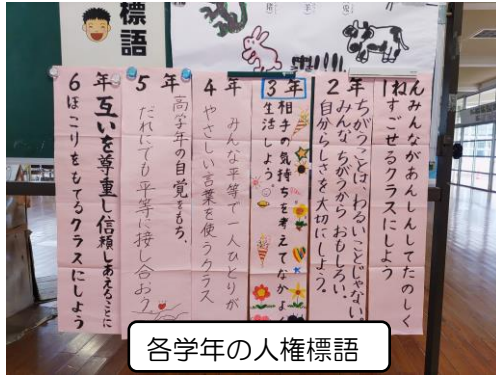 標語
1ねん
みんながあんしんしてたのしく
すごせるクラスにしよう
2年
ちがうことは、わるいことじゃない。
みんな ちがうから おもしろい。
自分らしさを大切にしよう。
3年
相手の気持ちを考えてなかよく
生活しよう
4年
みんな平等で一人ひとりが
やさしい言葉を使うクラス
5年
高学年の自覚をもち、
だれにでも平等に接し合おう
6年
互いを尊重し信頼しあえることに
ほこりをもてるクラスにしよう
各学年の人権標語